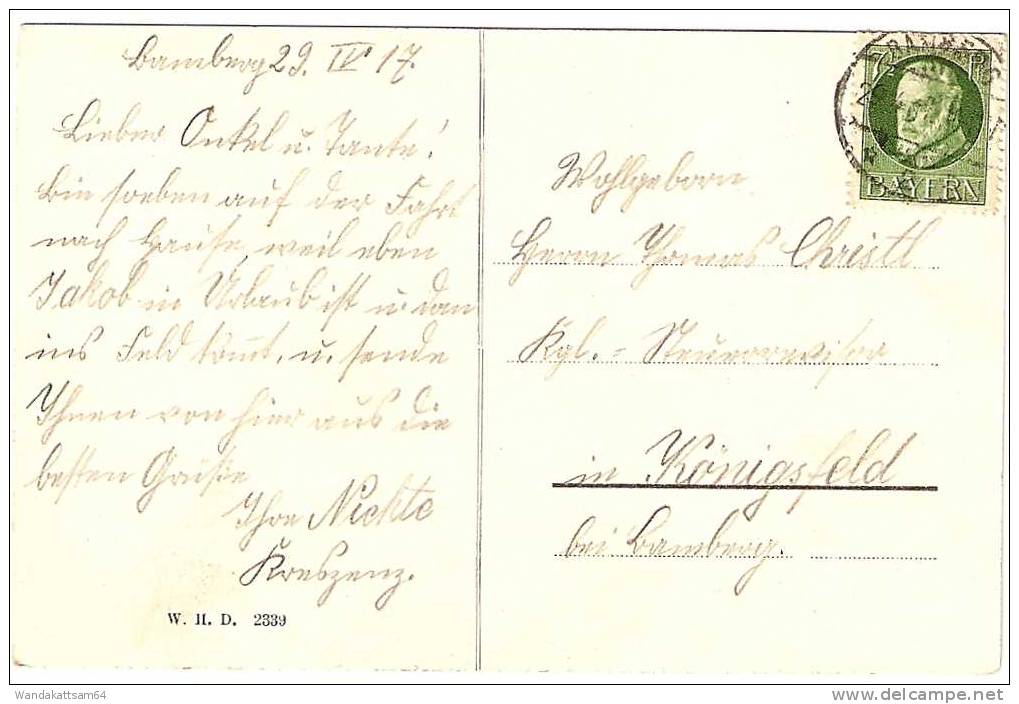 Bamberg 29. IV 17.
Lieber Onkel u. Tante!
Bin soeben auf der Fahrt
nach Hause, weil eben
Jakob in Urlaub ist u. dan
ins Feld komt, u. sende
Ihnen von hier aus die
besten Grüße
Ihre Nichte
Kreszenz.
W. H. D. 2339
7½ Pf
BAMBERG
BAYERN
Wohlgeborn
Herrn Thomas Christl
Kgl. = Steuerrevisor
in Königsfeld
bei Bamberg.
Wandakattsam64
www.delcampe.net